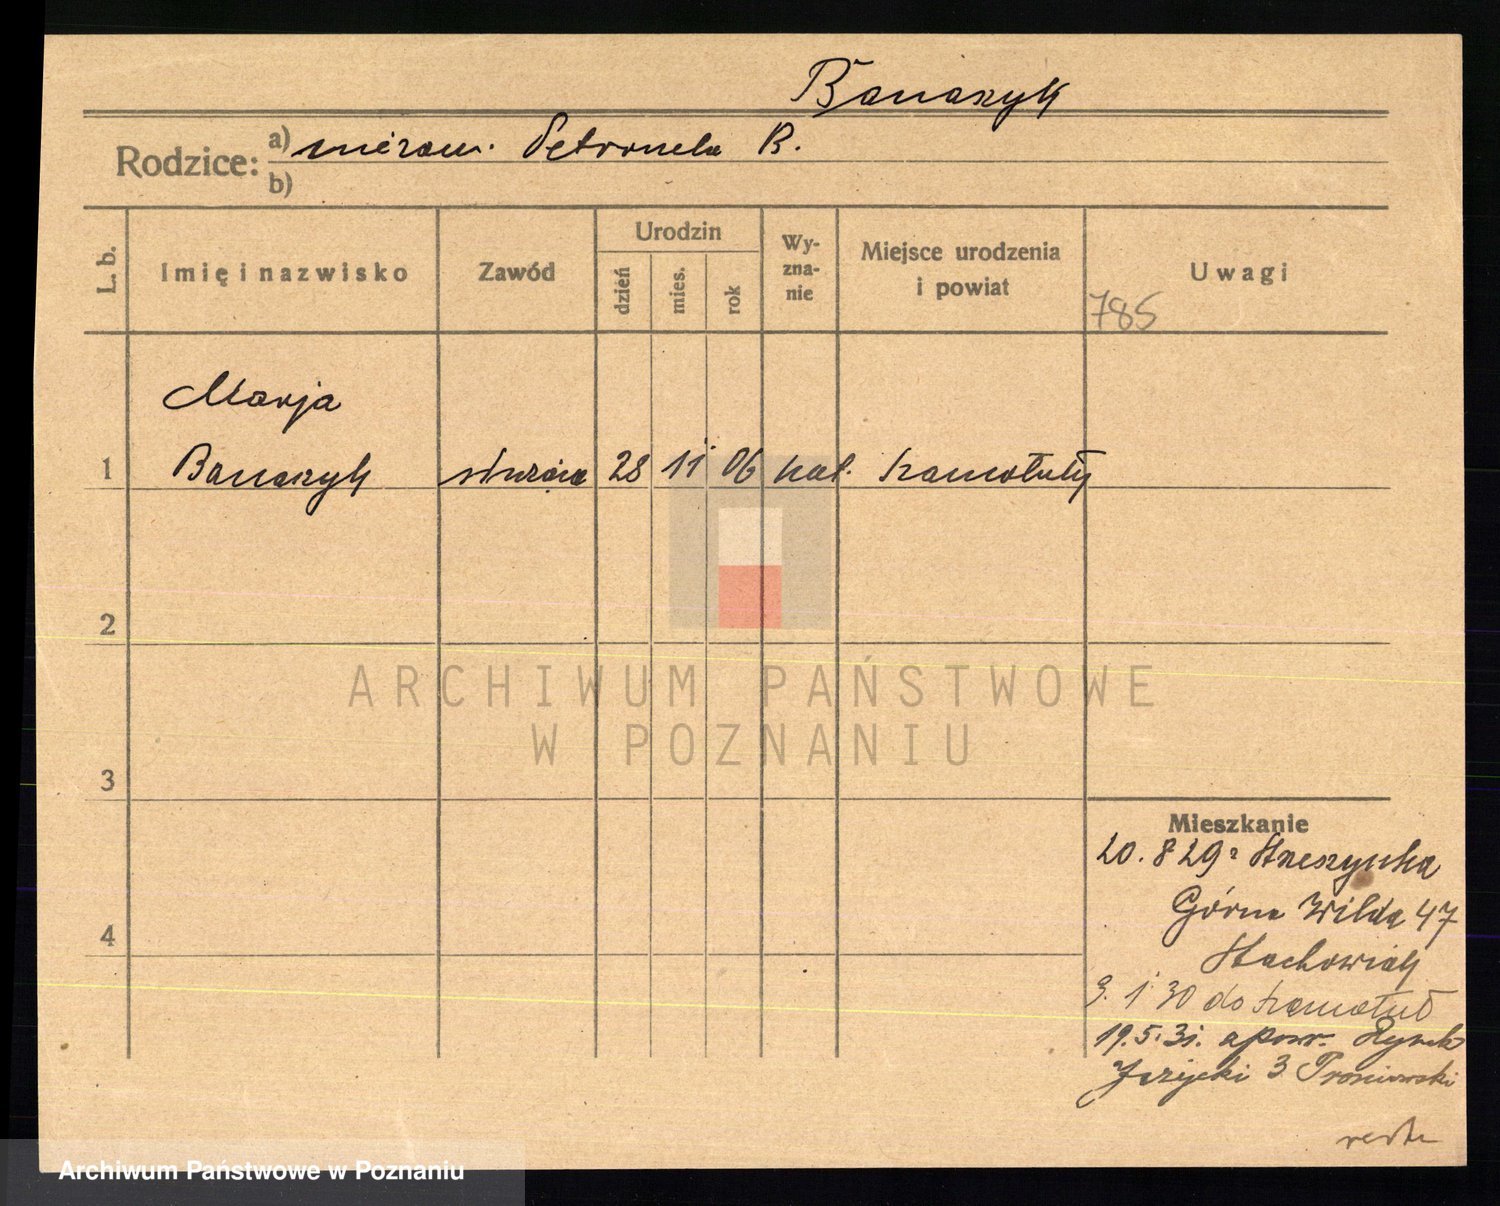 Banaszyk
Rodzice: a) niezam. Petronela B.
b)
L. b.
Imię i nazwisko
Zawód
Urodzin
dzień
mies.
rok
Wy-
zna-
nie
Miejsce urodzenia
i powiat
Uwagi
785
Marja
1 Banaszyk służąca 28 11 06 kat. Szamotuły
2
3
4
ARCHIWUM PAŃSTWOWE
W POZNANIU
Mieszkanie
20. 8 29 z Strzeszynka
Górna Wilda 47
Stachowiak
3. 1 30 do Szamotuł
19.5.31. zpowr. Rynek
Jeżycki 3
Archiwum Państwowe w Poznaniu